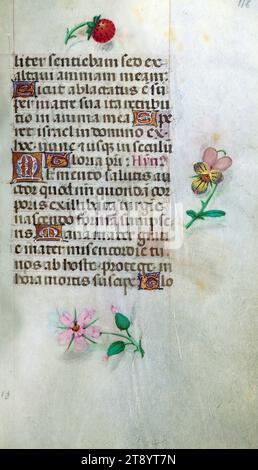 118
liter sentiebam sed ex
altaui animam meam:
Sicut ablactatus est su
per matre sua ita retribu
tio in anima mea Spe
ret israel in domino ex
hoc nunc et usque in seculu
Gloria pri: Hymn
Memento salutis auc
tor quod nri quondam cor
poris ex illibata uirgine
nascendo formam sump se
ris Maria mater gratie
mater misericordie tu
nos ab hoste protege in
hora mortis suscipe Glo
alamy
Image ID: 2T8YT7N
www.alamy.com